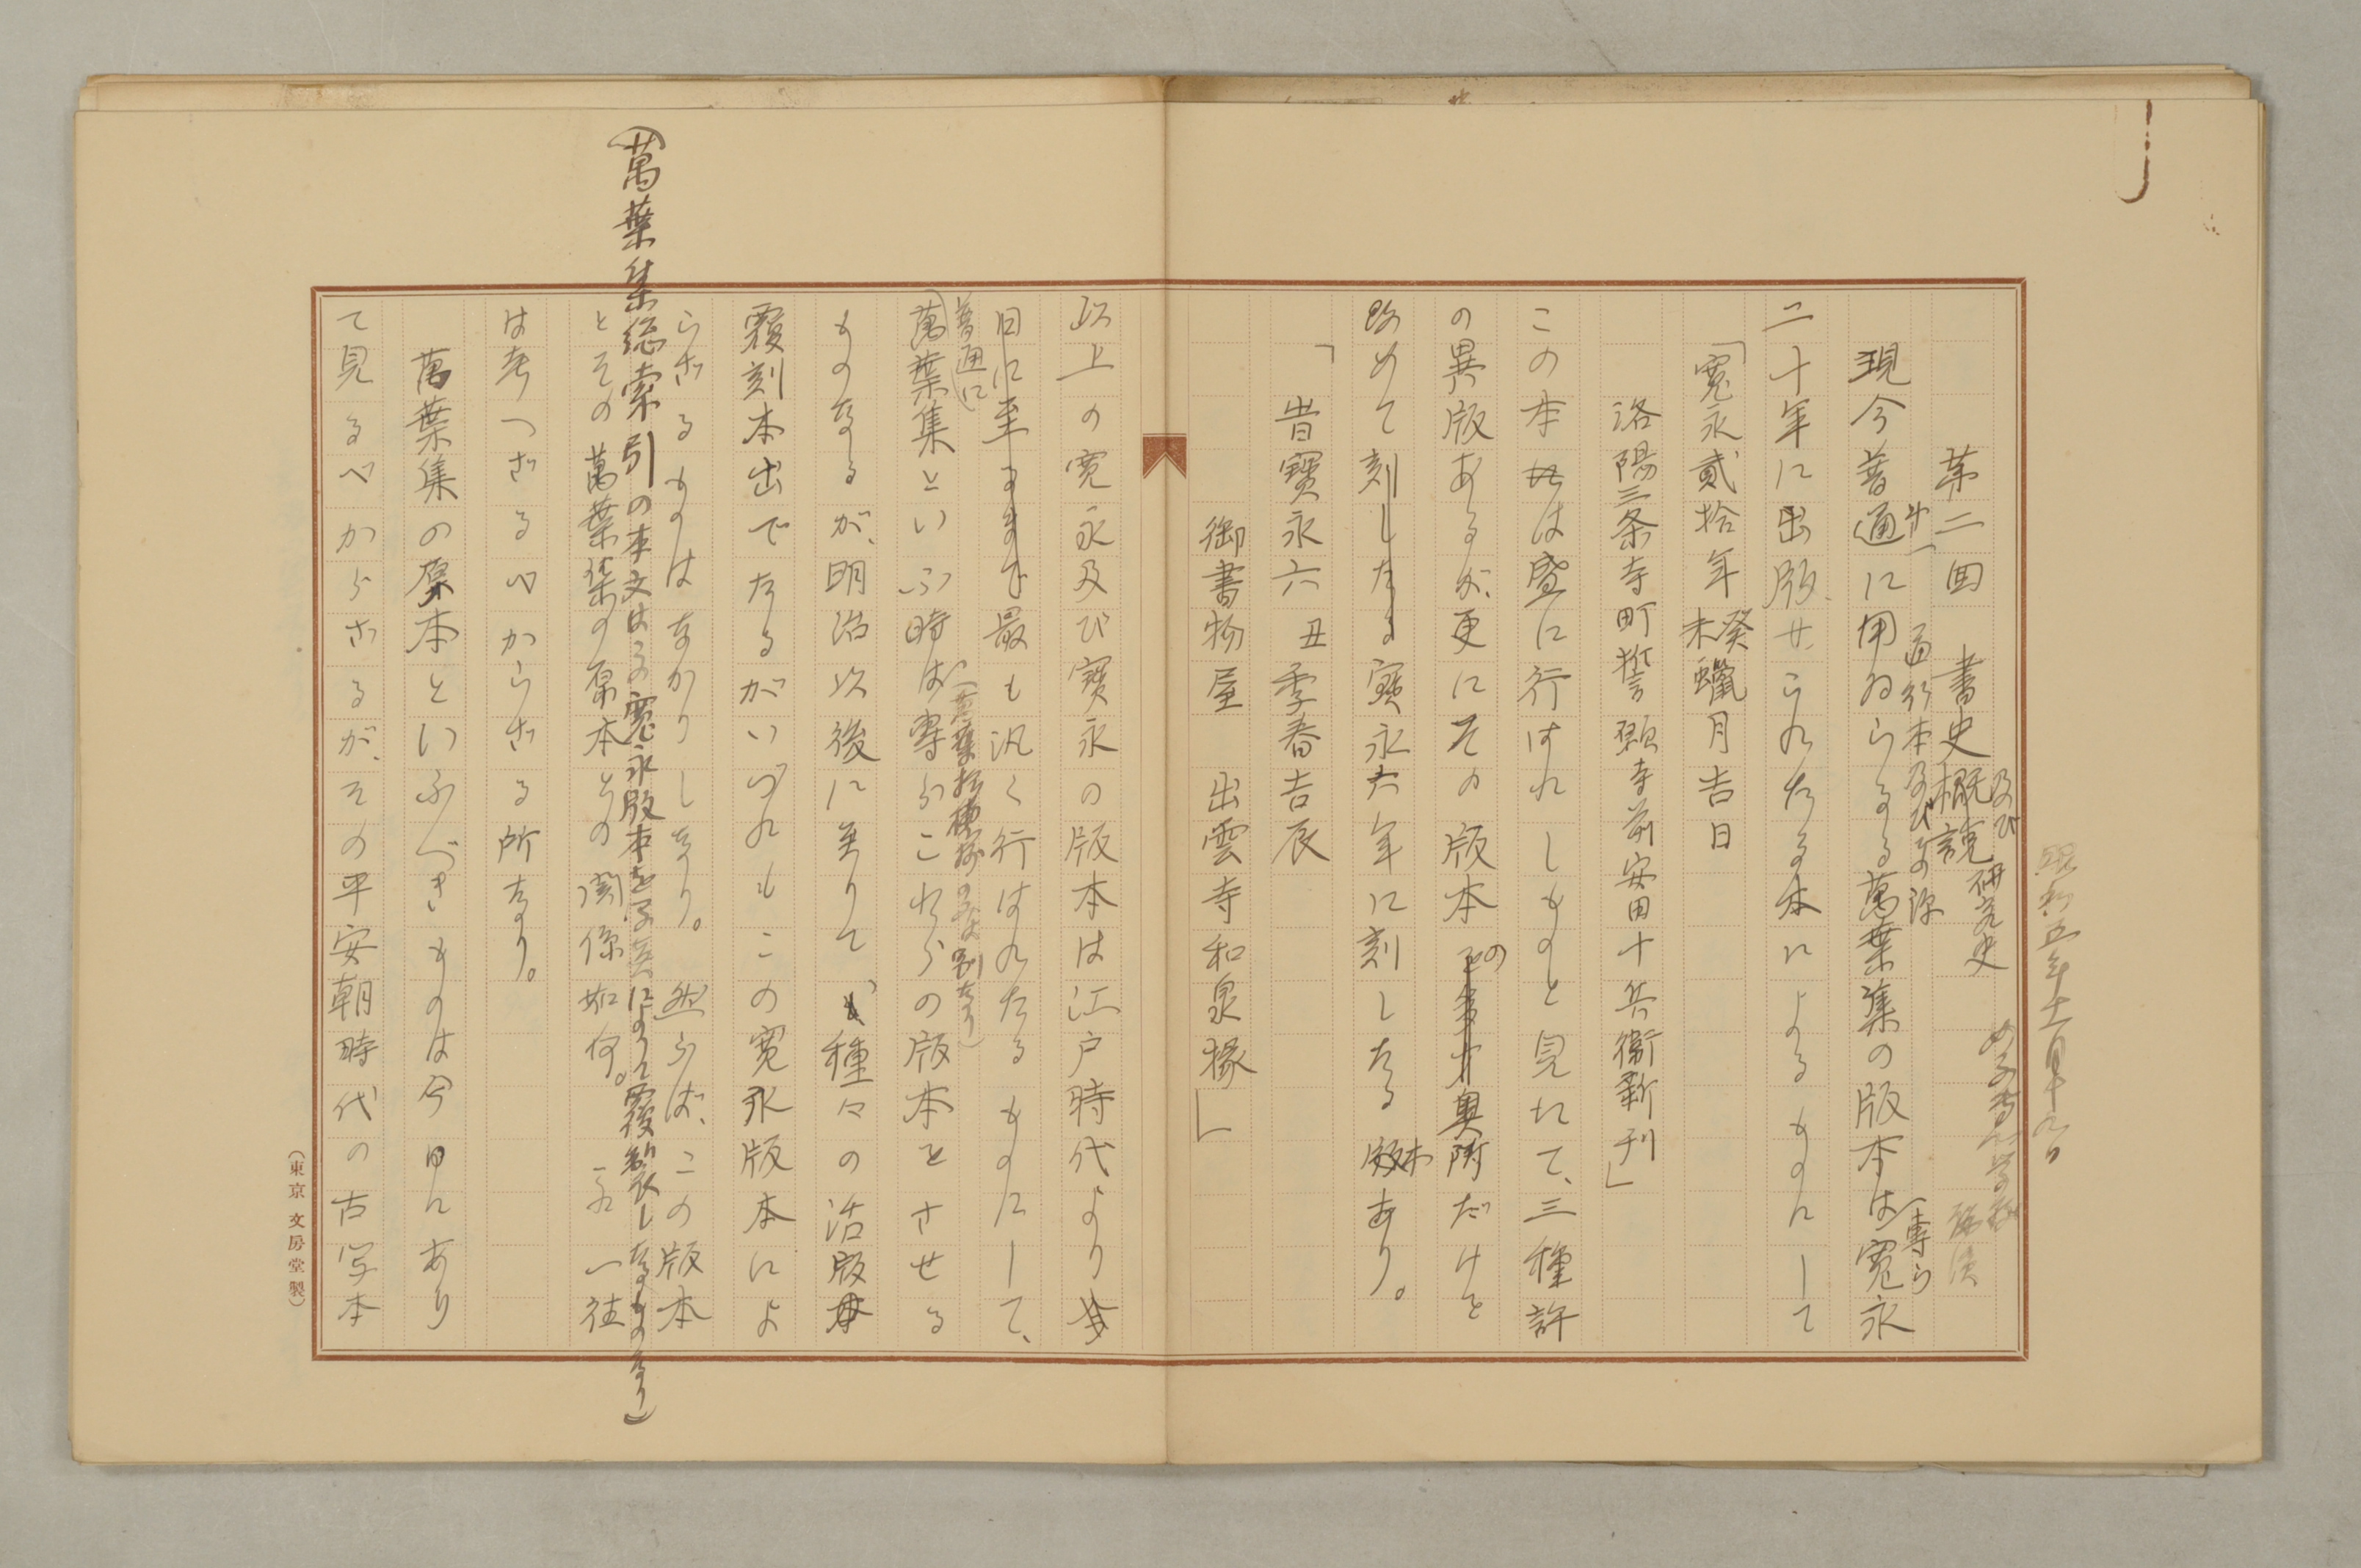 昭和五年十一月十九日
第二回 書史概説
及び研究史
講演
第一
通行本及びその源
現今普通に用ゐらるる萬葉集の版本は寛永
(専ら
二十年に出版せられたる本によるものにして
「寛永貳拾年癸未蠟月吉日
洛陽三条寺町誓願寺前安田十兵衛新刊」
この本は盛に行はれしものと見れて、三種許
の異版あるが、更にその版本の奥附だけを
改めて刻したる寶永六年に刻したる版本あり。
「旹寶永六丑季春吉辰
御書物屋 出雲寺和泉掾」
以上の寛永及び寶永の版本は江戸時代より今
日に至るまで最も汎く行はれたるものにして、
普通に
萬葉集といふ時は専らこれらの版本をさせる
ものなるが、明治以後に至りて種々の活版本
覆刻本出でたるがいづれもこの寛永版本によ
らざるものはなかりしなり。然らば、この版本
(萬葉集総索引の本文はこの寛永版本を写真によりて覆製しなるものなり)
とその萬葉集の原本との関係如何。一応一往
は考へざるべからざる所なり。
萬葉集の原本といふべきものは今日にあり
て見るべからざるが、その平安朝時代の古写本
(東京 文房堂製)